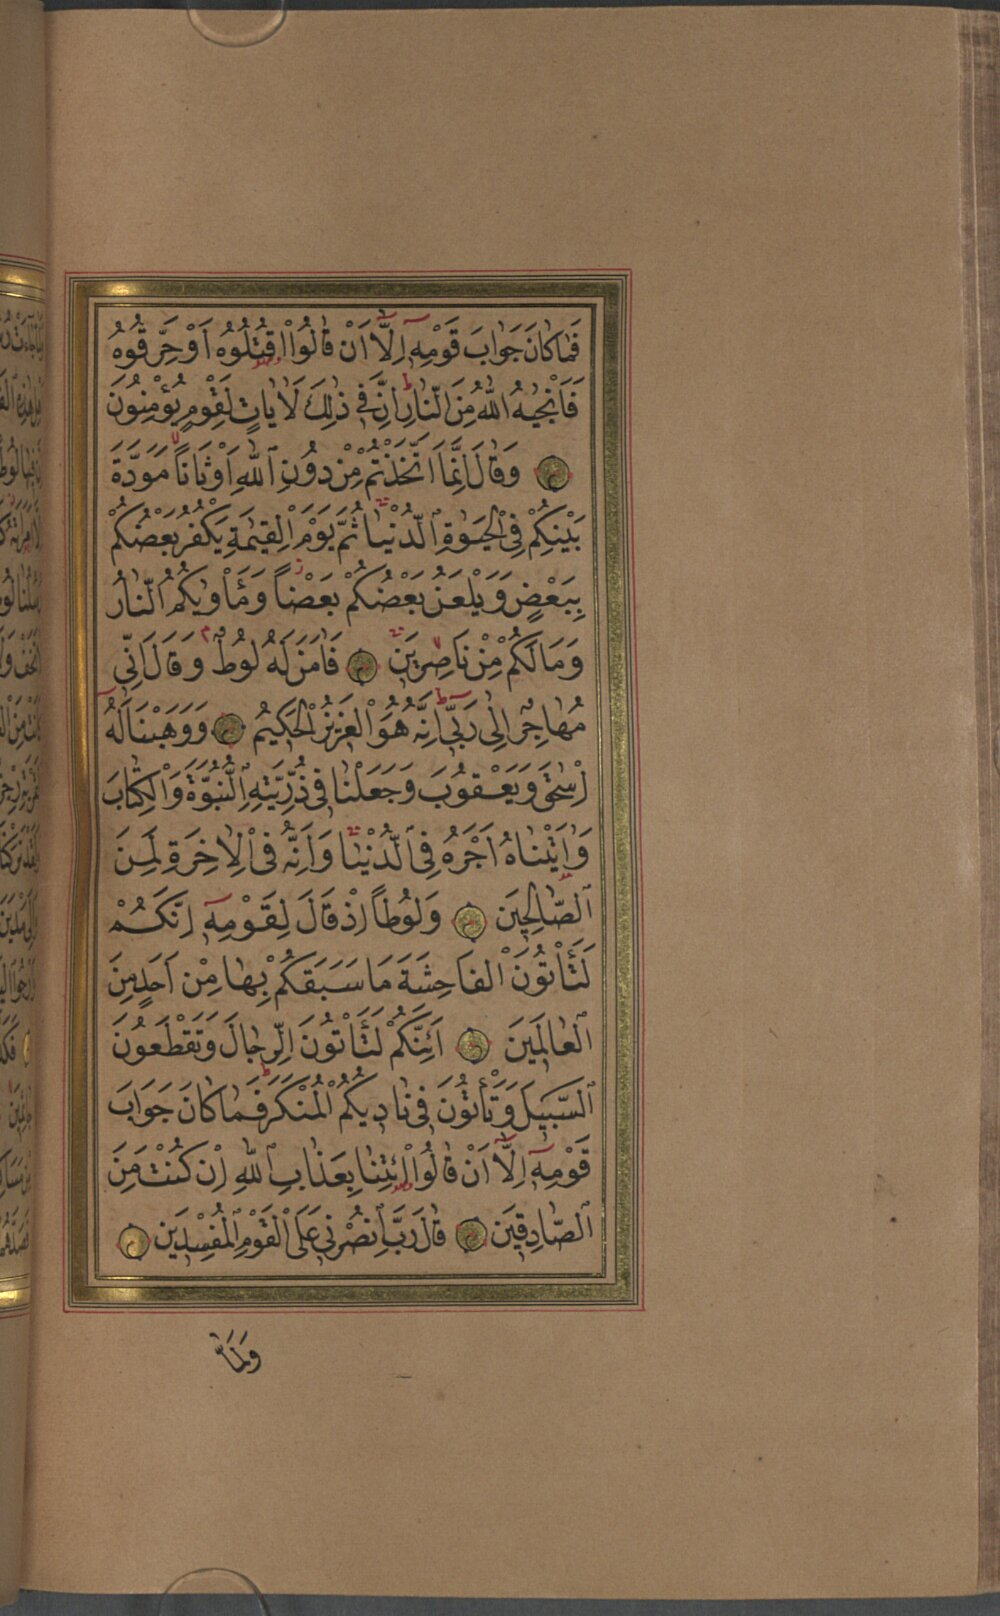 فَمَا كَانَ جَوَابَ قَوْمِهِ اِلَّا اَنْ قَالُوا اقْتُلُوهُ اَوْ حَرِّقُوهُ
فَاَنْجٰيهُ اللّٰهُ مِنَ النَّارِ اِنَّ فِي ذٰلِكَ لَاٰيَاتٍ لِقَوْمٍ يُؤْمِنُونَ
وَقَالَ اِنَّمَا اتَّخَذْتُمْ مِنْ دُونِ اللّٰهِ اَوْثَانًا مَوَدَّةَ
بَيْنِكُمْ فِي الْحَيٰوةِ الدُّنْيَا ثُمَّ يَوْمَ الْقِيٰمَةِ يَكْفُرُ بَعْضُكُمْ
بِبَعْضٍ وَيَلْعَنُ بَعْضُكُمْ بَعْضًا وَمَأْوٰيكُمُ النَّارُ
وَمَا لَكُمْ مِنْ نَاصِرِينَ فَاٰمَنَ لَهُ لُوطٌ وَقَالَ اِنِّي
مُهَاجِرٌ اِلٰى رَبِّي اِنَّهُ هُوَ الْعَزِيزُ الْحَكِيمُ وَوَهَبْنَا لَهُ
اِسْحٰقَ وَيَعْقُوبَ وَجَعَلْنَا فِي ذُرِّيَّتِهِ النُّبُوَّةَ وَالْكِتَابَ
وَاٰتَيْنَاهُ اَجْرَهُ فِي الدُّنْيَا وَاِنَّهُ فِي الْاٰخِرَةِ لَمِنَ
الصَّالِحِينَ وَلُوطًا اِذْ قَالَ لِقَوْمِهِ اِنَّكُمْ
لَتَأْتُونَ الْفَاحِشَةَ مَا سَبَقَكُمْ بِهَا مِنْ اَحَدٍ مِنَ
الْعَالَمِينَ اَئِنَّكُمْ لَتَأْتُونَ الرِّجَالَ وَتَقْطَعُونَ
السَّبِيلَ وَتَأْتُونَ فِي نَادِيكُمُ الْمُنْكَرَ فَمَا كَانَ جَوَابَ
قَوْمِهِ اِلَّا اَنْ قَالُوا ائْتِنَا بِعَذَابِ اللّٰهِ اِنْ كُنْتَ مِنَ
الصَّادِقِينَ قَالَ رَبِّ انْصُرْنِي عَلَى الْقَوْمِ الْمُفْسِدِينَ
وَلَمَّا